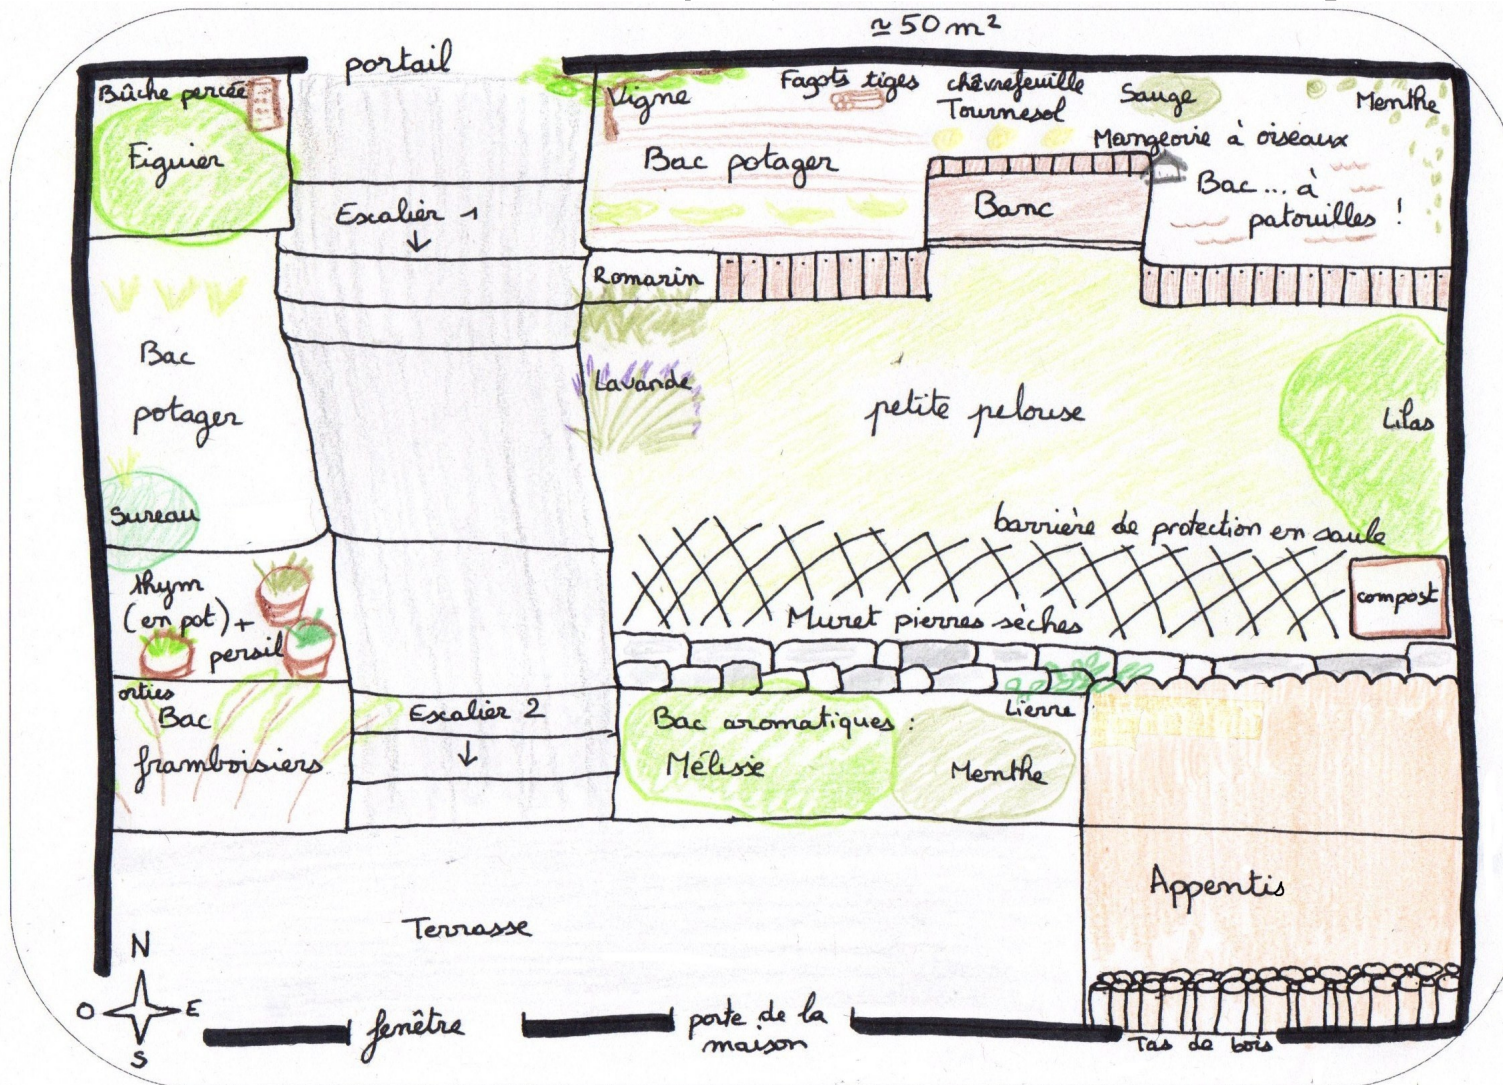 ≃ 50 m²
portail
Bûche percée
Figuier
Vigne
Fagots tiges
chèvrefeuille
Tournesol
Sauge
Menthe
Mangeoire à oiseaux
Bac potager
Banc
Bac... à
patouilles !
Escalier 1
Romarin
Bac
potager
Lavande
petite pelouse
Lilas
Sureau
barrière de protection en saule
thym
(en pot) +
persil
compost
Muret pierres sèches
orties
Bac
framboisiers
Escalier 2
Bac aromatiques :
Mélisse
Menthe
Lierre
Appentis
Terrasse
N
O
E
S
fenêtre
porte de la
maison
Tas de bois